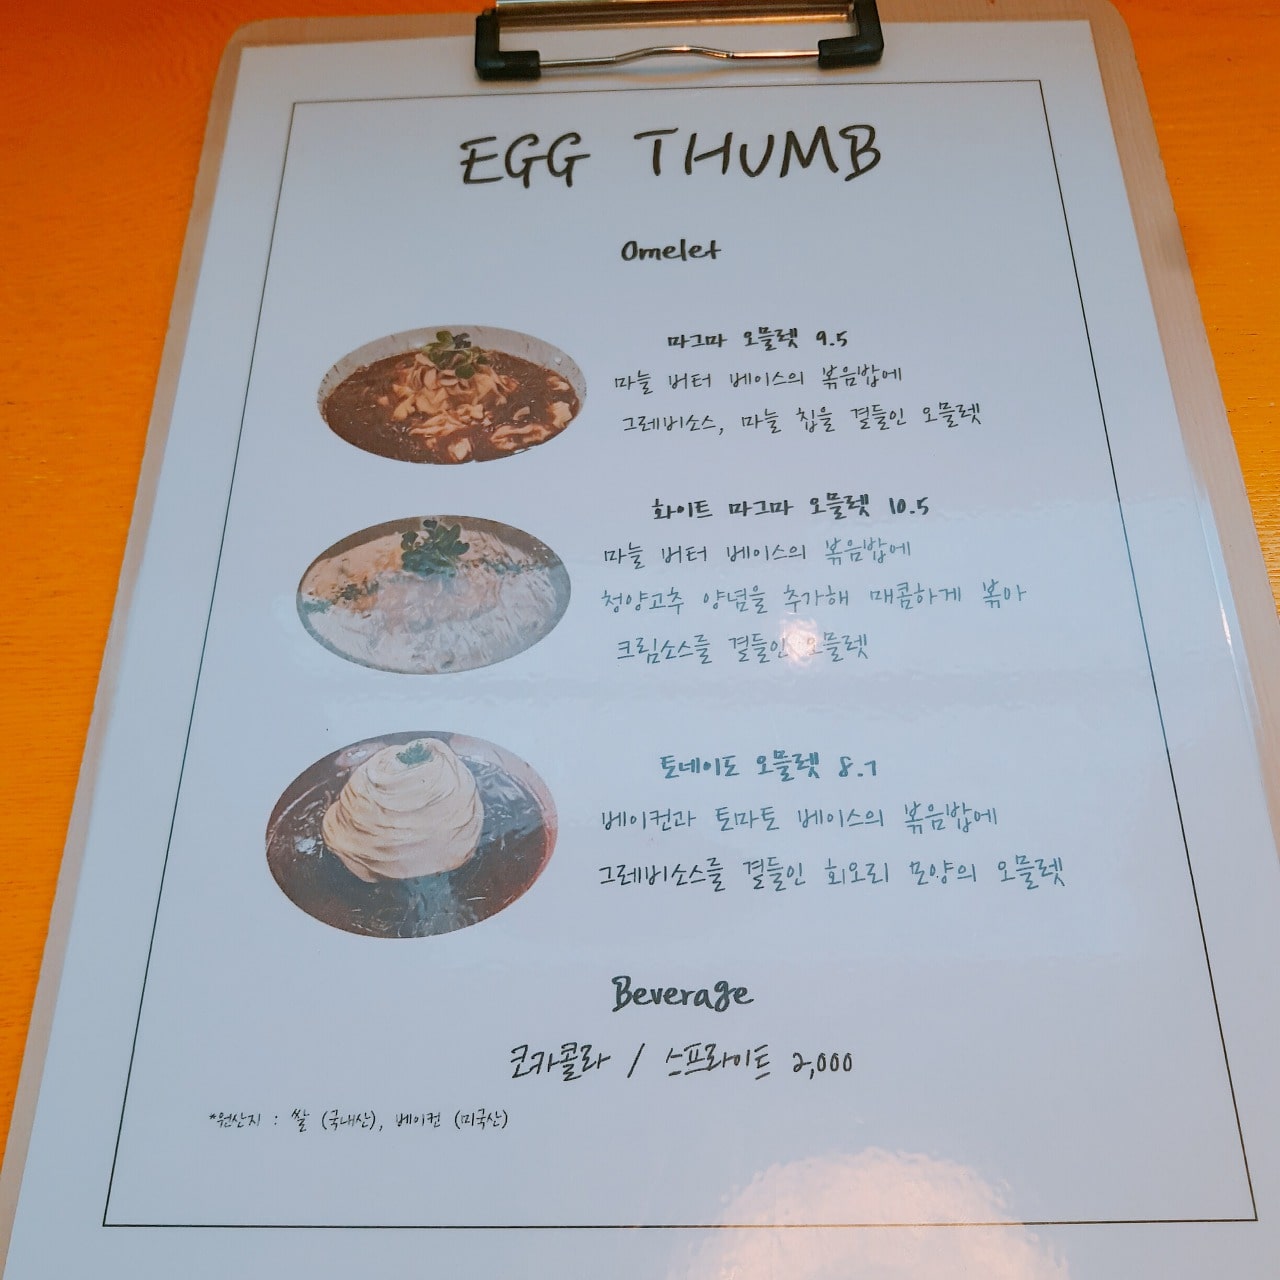 EGG THUMB
Omelet
마그마 오믈렛 9.5
마늘 버터 베이스의 볶음밥에
그레비소스, 마늘 칩을 곁들인 오믈렛
화이트 마그마 오믈렛 10.5
마늘 버터 베이스의 볶음밥에
청양고추 양념을 추가해 매콤하게 볶아
크림소스를 곁들인 오믈렛
토네이도 오믈렛 8.7
베이컨과 토마토 베이스의 볶음밥에
그레비소스를 곁들인 회오리 모양의 오믈렛
Beverage
코카콜라 / 스프라이트 2,000
*원산지 : 쌀 (국내산), 베이컨 (미국산)